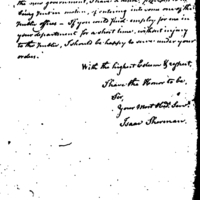 the new government, I have a
being put in motion, of entering into some one of the
Public offices — If you could find employ for me in
your department for a short time, without injury
to the Public, I should be happy to serve under your
orders.
With the highest Esteem & respect,
I have the Honor to be,
Sir,
Your Most Obdt. Servt.
Isaac Sherman.